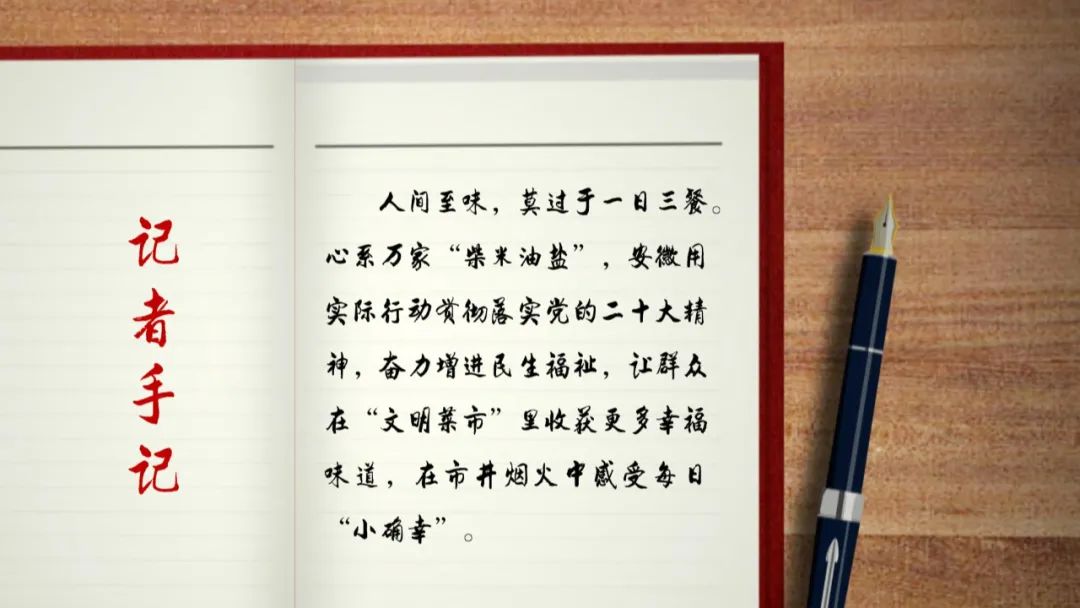 记者手记
人间至味，莫过于一日三餐。
心系万家“柴米油盐”，安徽用
实际行动贯彻落实党的二十大精
神，奋力增进民生福祉，让群众
在“文明菜市”里收获更多幸福
味道，在市井烟火中感受每日
“小确幸”。